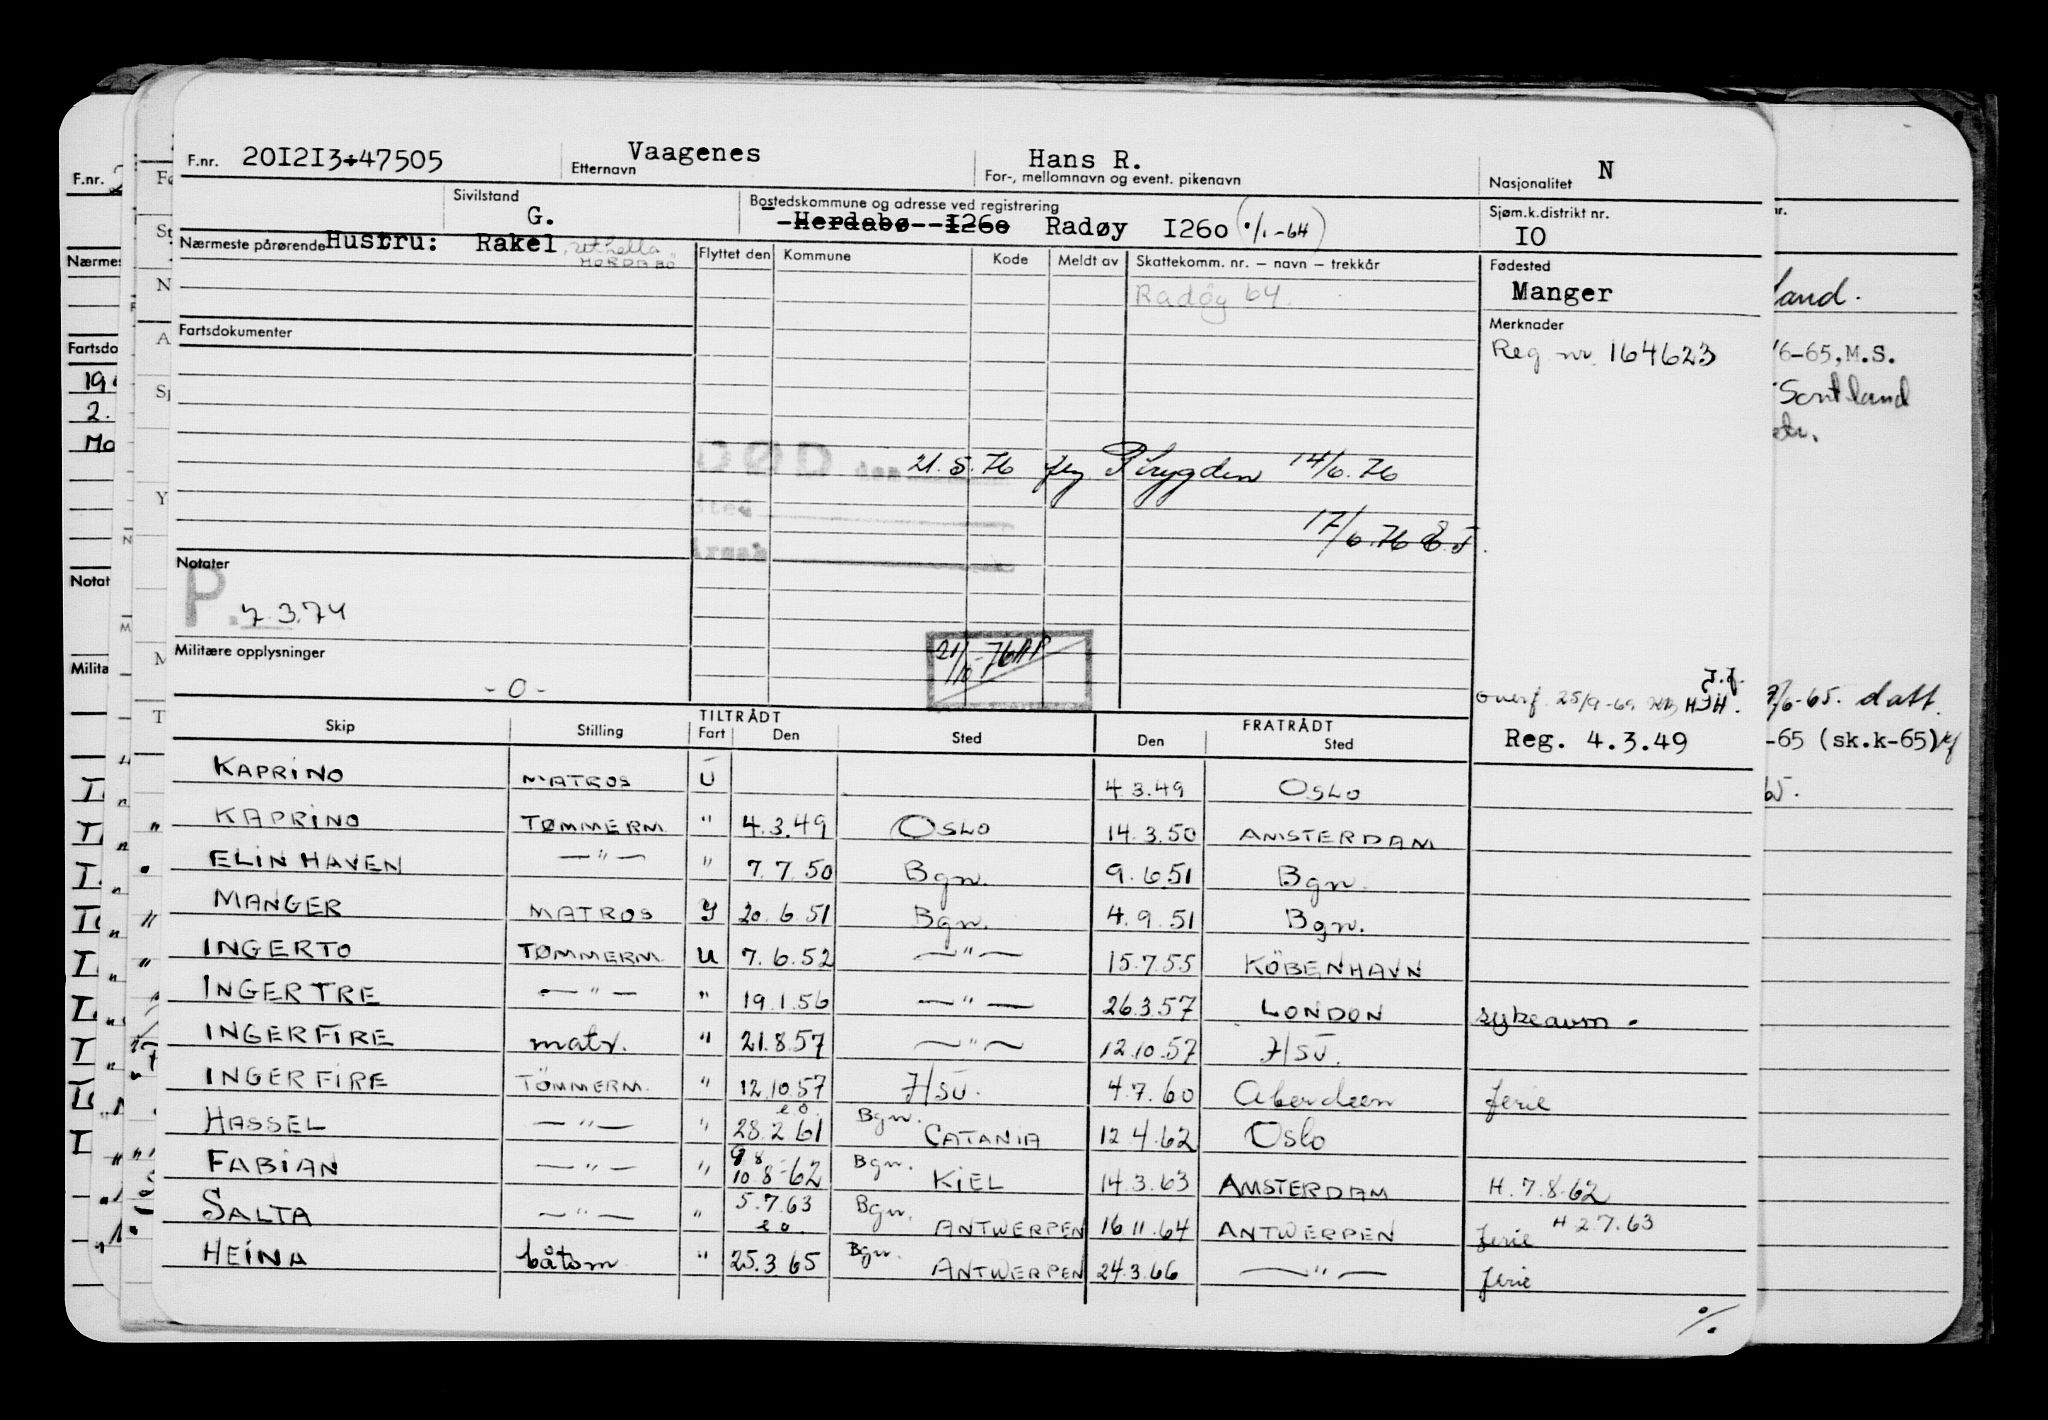 F.nr. 201213+47505 Etternavn Vaagenes For-, mellomnavn og event. pikenavn Hans R. Nasjonalitet N
Sivilstand G. Bostedskommune og adresse ved registrering Herdabø I260 Radøy I260 (1/1-64) Sjøm.k.distrikt nr. IO
Nærmeste pårørende Hustru: Rakel
HORDABØ
Flyttet den Kommune Kode Meldt av Skattekomm. nr. – navn – trekkår Fødested
Radöy 64. Manger
Fartsdokumenter Merknader
Reg nr. 164623
DØD den 21.5.76 14/6.76
Sted
17/6.76
Årsak
Notater
P. 7.3.74
Militære opplysninger
- 0 -
21/10-76
overf. 25/9-69 HJH.
Reg. 4.3.49
TILTRÅDT FRATRÅDT
Skip Stilling Fart Den Sted Den Sted
KAPRINO MATROS U 4.3.49 OSLO
KAPRINO TØMMERM. " 4.3.49 OSLO 14.3.50 AMSTERDAM
ELIN HAVEN — " — " 7.7.50 Bgn. 9.6.51 Bgn.
MANGER MATROS Y 20.6.51 Bgn. 4.9.51 Bgn.
INGERTO TØMMERM. U 7.6.52 — " — 15.7.55 KÖBENHAVN
INGERTRE — " — " 19.1.56 — " — 26.3.57 LONDON sykeavm.
INGERFIRE matr. " 21.8.57 — " — 12.10.57 I/SU.
INGERFIRE TÖMMERM. " 12.10.57 I/SU. 4.7.60 Aberdeen ferie
HASSEL — " — " 28.2.61 e.o. Bgn. CATANIA 12.4.62 Oslo
FABIAN — " — " 9.8 10.8-62 Bgn. KIEL 14.3.63 AMSTERDAM H. 7.8.62
SALTA — " — " 5.7.63 e.o. Bgn. ANTWERPEN 16.11.64 ANTWERPEN ferie H 2.7.63
HEINA båtsm. " 25.3.65 Bgn. ANTWERPEN 24.3.66 — " — ferie
%
F.nr.
Nærmes
Fartsdo
19
2.
Mo
Notat
Milita
land.
/6-65, M.S.
-65. datt.
-65 (sk.k-65)